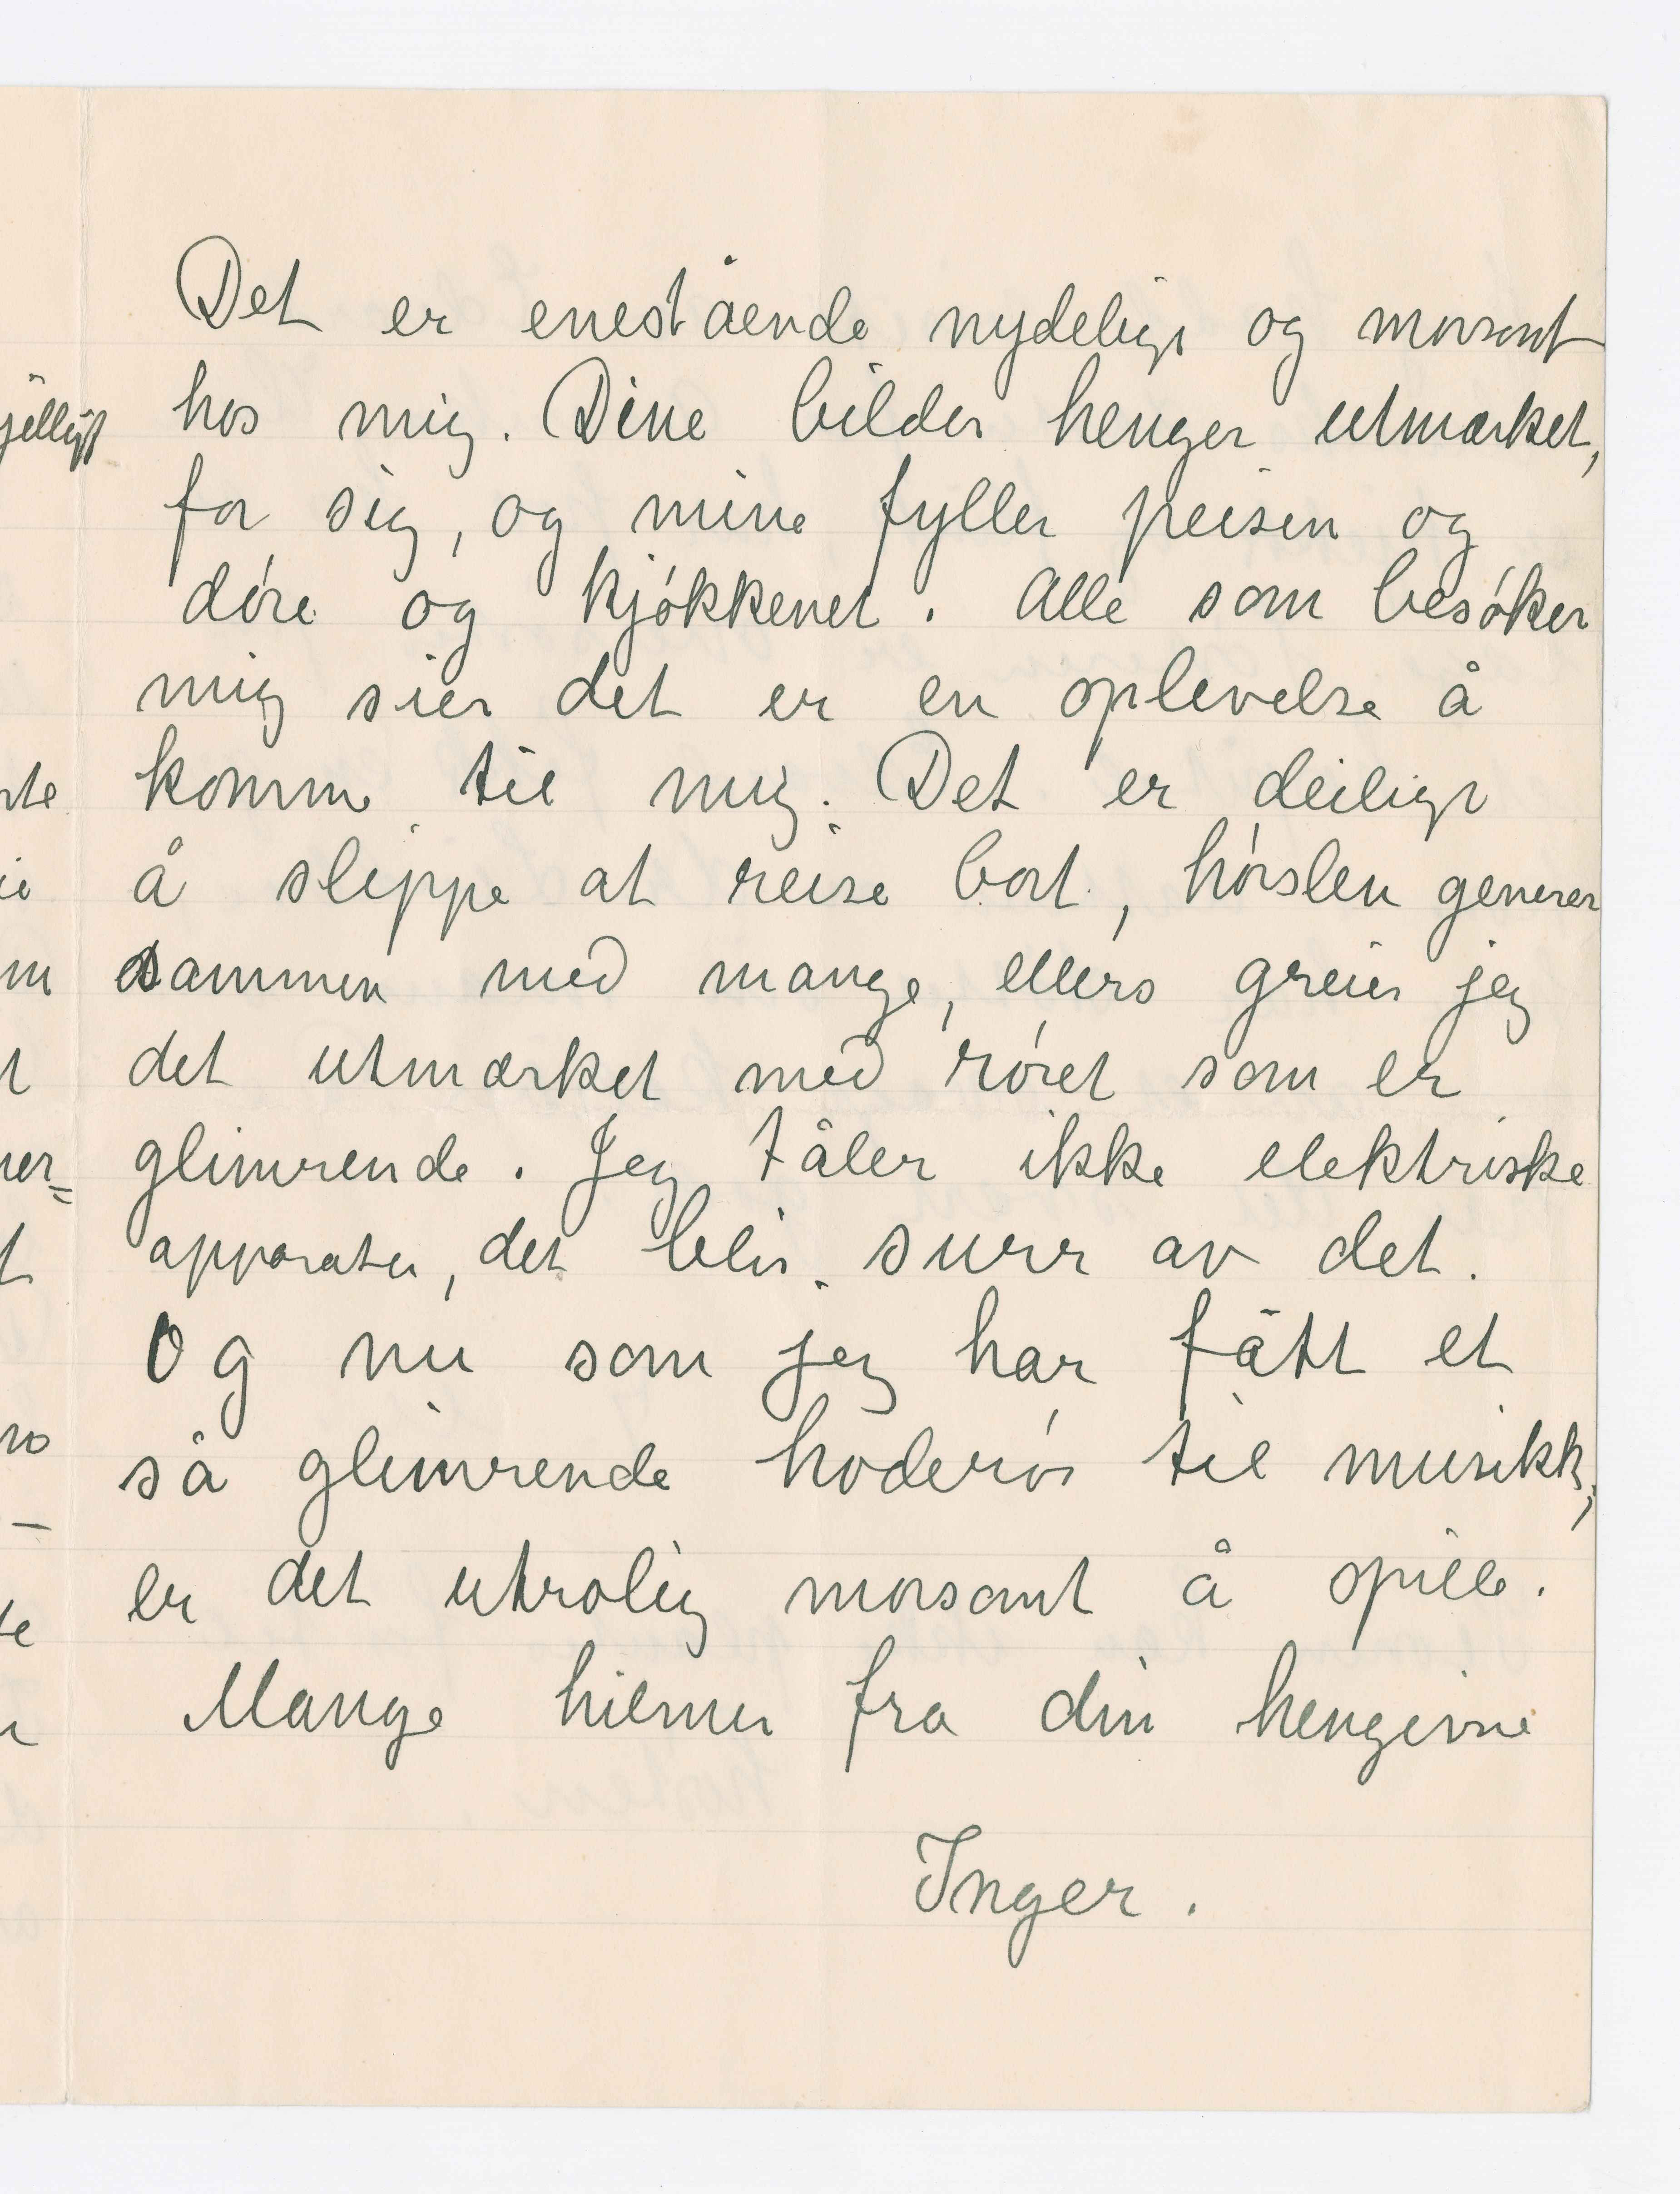 Det er enestående nydeligt og morsomt
hos mig. Dine bilder henger utmærket,
for sig, og mine fyller peisen og
døre og kjøkkenet. Alle som besøker
mig sier det er en oplevelse å
komme til mig. Det er deiligt
å slippe at reise bort, hørslen generer
sammen med mange, ellers greier jeg
det utmærket med røret som er
glimrende. Jeg tåler ikke elektriske
apparater, det blir surr av det.
Og nu som jeg har fått et
så glimrende hoderør til musikk,
er det utrolig morsomt å spille.
Mange hilsner fra din hengivne
Inger.